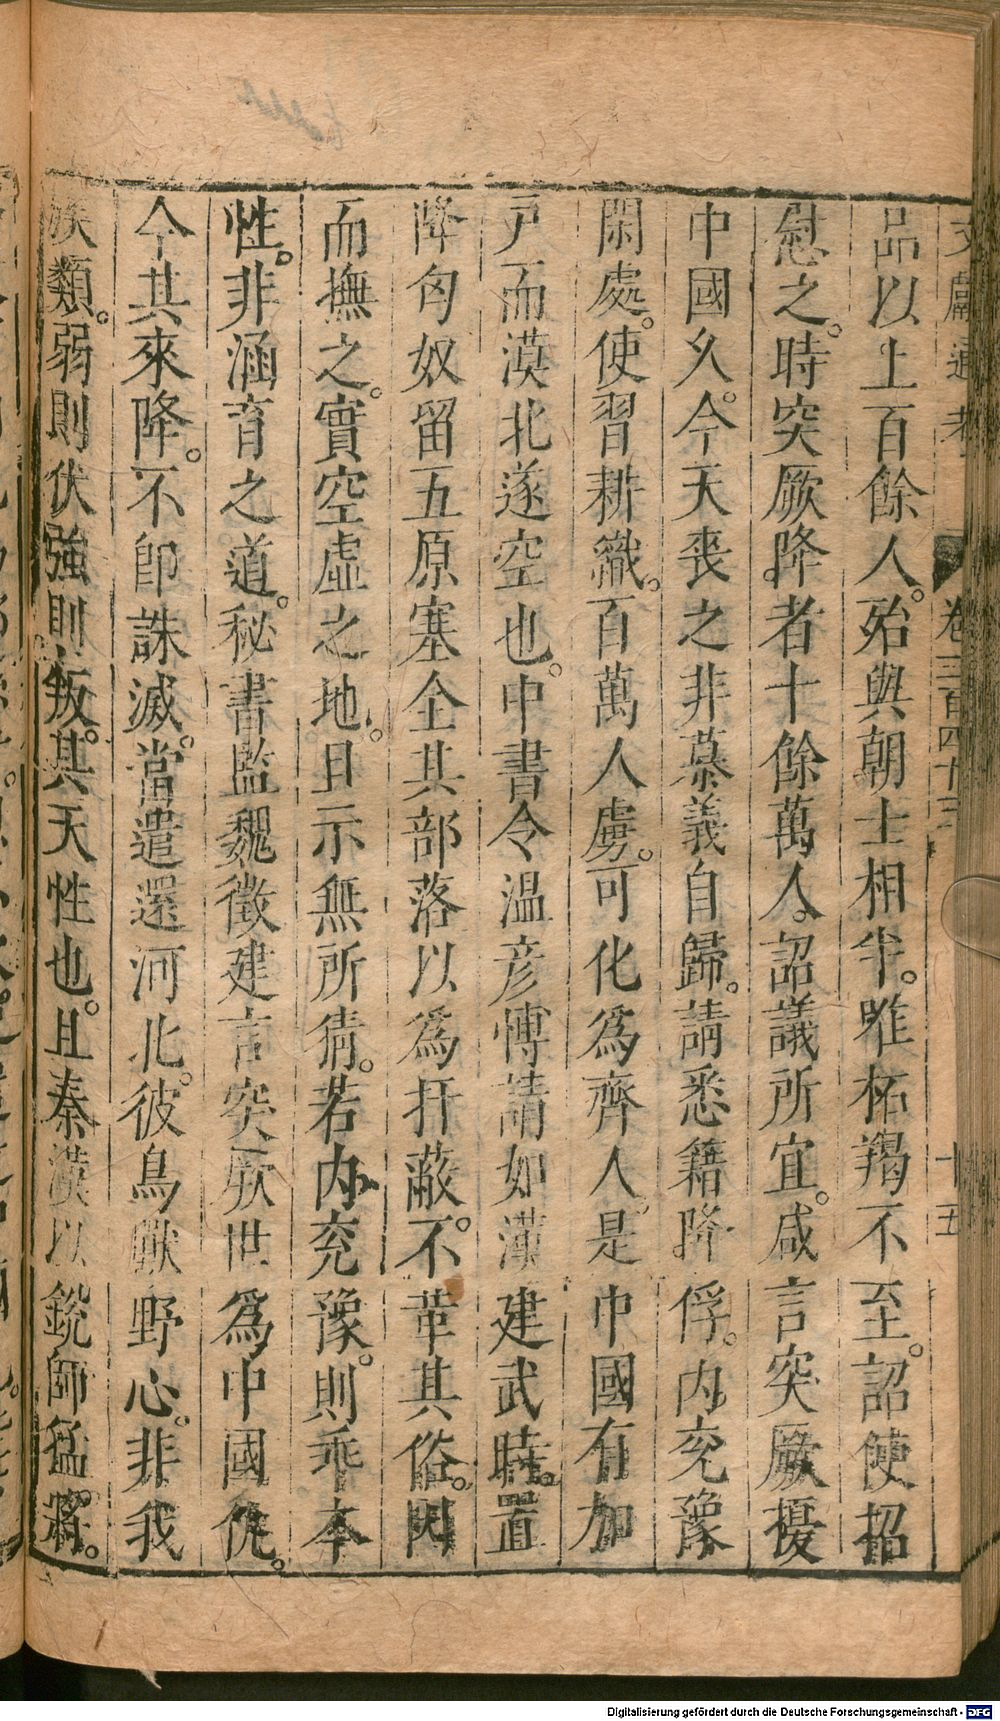 文獻通考 卷三百四十三 十五
品以上百餘人。殆與朝士相半。唯柘羯不至。詔使招
慰之。時突厥降者十餘萬人。詔議所宜。咸言突厥擾
中國久。今天喪之非慕義自歸。請悉籍降俘。內兖豫
閑處。使習耕織。百萬人虜。可化為齊人。是中國有加
戸而漠北遂空也。中書令温彦博請如漢建武時。置
降匈奴留五原塞全其部落以爲扞蔽。不革其俗。因
而撫之。實空虛之地。且示無所猜。若內兖豫。則乖本
性。非涵育之道。秘書監魏徵建言突厥世爲中國仇。
今其來降。不卽誅滅。當遣還河北。彼鳥獸野心。非我
族類。弱則伏強則叛。其天性也。且秦漢以銳師猛將。
Digitalisierung gefördert durch die Deutsche Forschungsgemeinschaft - DFG